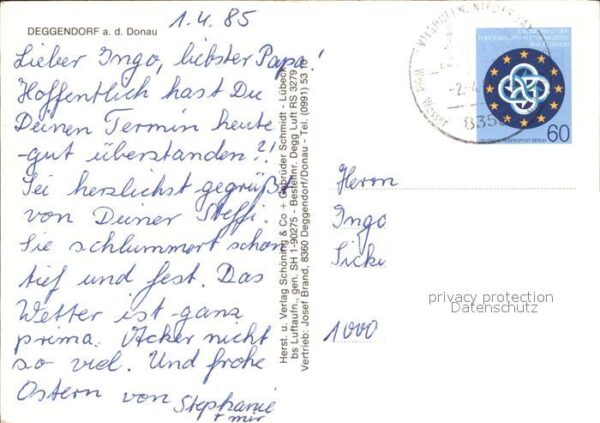 DEGGENDORF a. d. Donau
1.4.85
Lieber Ingo, liebster Papa!
Hoffentlich hast Du
Deinen Termin heute
gut überstanden?!
Sei herzlichst gegrüßt
von Deiner Steffi.
Sie schlummert schon
tief und fest. Das
Wetter ist ganz
prima. Acker nicht
so viel. Und frohe
Ostern von Stephanie
+ mir
Herst. u. Verlag Schöning & Co + Gebrüder Schmidt - Lübeck
bs Luftaufn., gen. SH 1-90275 - Bestellnr. Deg Luft RS 3279
Vertrieb: Josef Brand, 8360 Deggendorf/Donau - Tel. (0991) 53
VILSHOFEN, NIEDERBAY
-2.4
835
4. KONFERENZ DER
EUROPÄISCHEN KULTURMINISTER
BERLIN
60
DEUTSCHE BUNDESPOST BERLIN
Herrn
Ingo
1000
privacy protection
Datenschutz